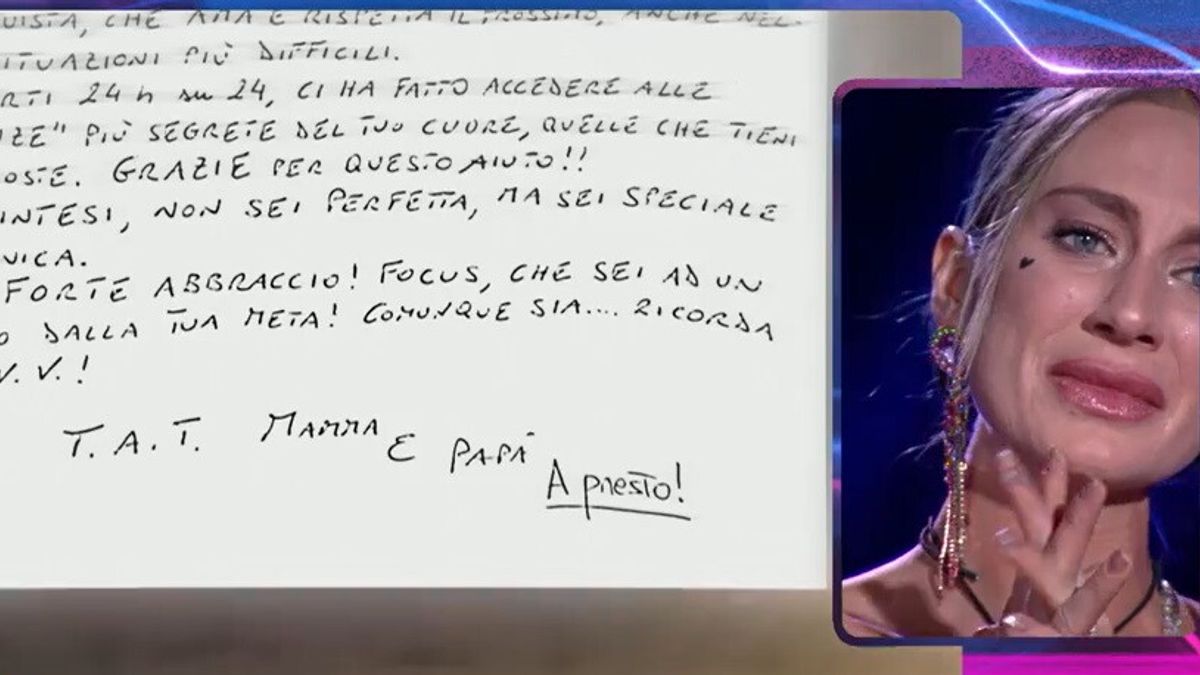 UISTA, CHE AMA E RISPETTA IL PROSSIMO, ANCHE NEL
ITUAZIONI PIÙ DIFFICILI.
RTI 24 h su 24, CI HA FATTO ACCEDERE ALLE
NZE" PIÙ SEGRETE DEL TUO CUORE, QUELLE CHE TIENI
OSTE. GRAZIE PER QUESTO AIUTO!!
INTESI, NON SEI PERFETTA, MA SEI SPECIALE
NICA.
FORTE ABBRACCIO! FOCUS, CHE SEI AD UN
O DALLA TUA META! COMUNQUE SIA.... RICORDA
V. V.!
T. A. T. MAMMA E PAPÀ
A presto!